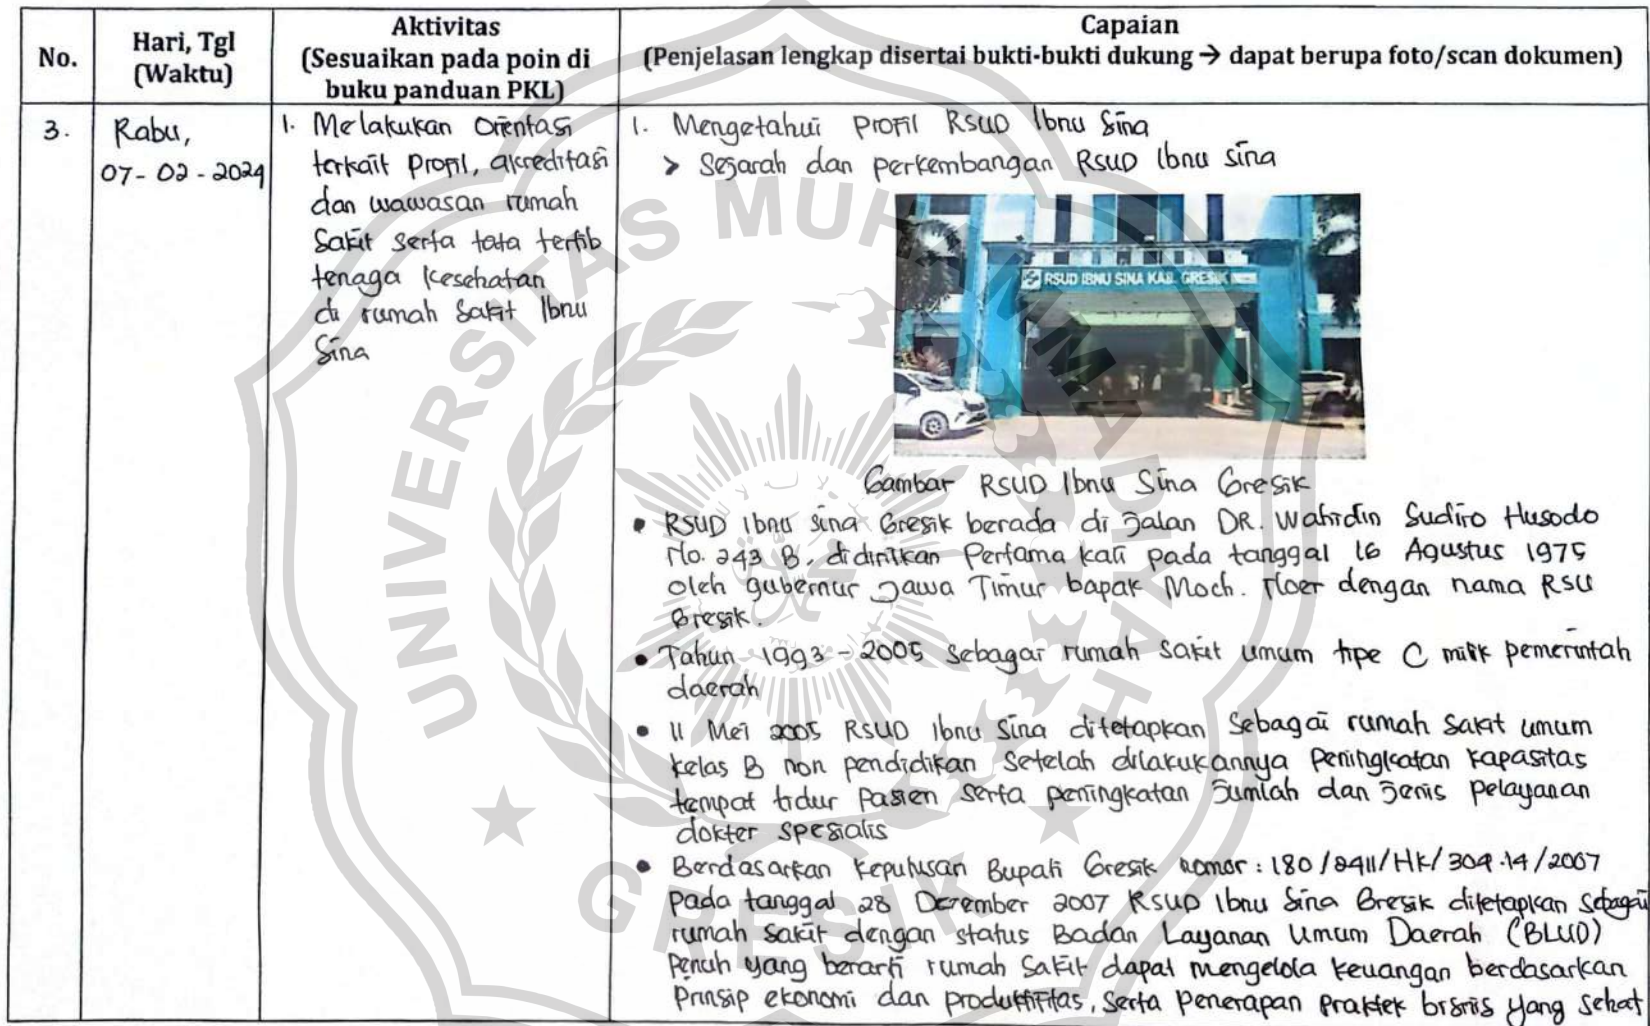 No.
Hari, Tgl
(Waktu)
Aktivitas
(Sesuaikan pada poin di
buku panduan PKL)
Capaian
(Penjelasan lengkap disertai bukti-bukti dukung → dapat berupa foto/scan dokumen)
3.
Rabu,
07-02-2024
1. Melakukan Orientasi
terkait Profil, akreditasi
dan wawasan rumah
Sakit serta tata tertib
tenaga Kesehatan
di rumah Sakit Ibnu
Sina
1. Mengetahui Profil RSUD Ibnu Sina
> Sejarah dan perkembangan RSUD Ibnu Sina
RSUD IBNU SINA KAB. GRESIK
Gambar RSUD Ibnu Sina Gresik
• RSUD Ibnu Sina Gresik berada di Jalan DR. Wahidin Sudiro Husodo
No. 243 B, didirikan Pertama kali pada tanggal 16 Agustus 1975
oleh gubernur Jawa Timur bapak Moch. Noer dengan nama RSU
Gresik.
• Tahun 1993 - 2005 sebagai rumah sakit umum tipe C milik pemerintah
daerah
• 11 Mei 2005 RSUD Ibnu Sina ditetapkan Sebagai rumah sakit umum
kelas B non pendidikan setelah dilakukannya Peningkatan kapasitas
tempat tidur Pasien serta peningkatan Jumlah dan Jenis pelayanan
dokter spesialis
• Berdasarkan Keputusan Bupati Gresik nomor : 180/2411/HK/304.14/2007
Pada tanggal 28 Desember 2007 RSUD Ibnu Sina Gresik ditetapkan sebagai
rumah sakit dengan status Badan Layanan Umum Daerah (BLUD)
Penuh yang berarti rumah Sakit dapat mengelola keuangan berdasarkan
Prinsip ekonomi dan produktifitas, serta Penerapan Praktek bisnis yang sehat
UNIVERSITAS MUHAMMADIYAH
GRESIK